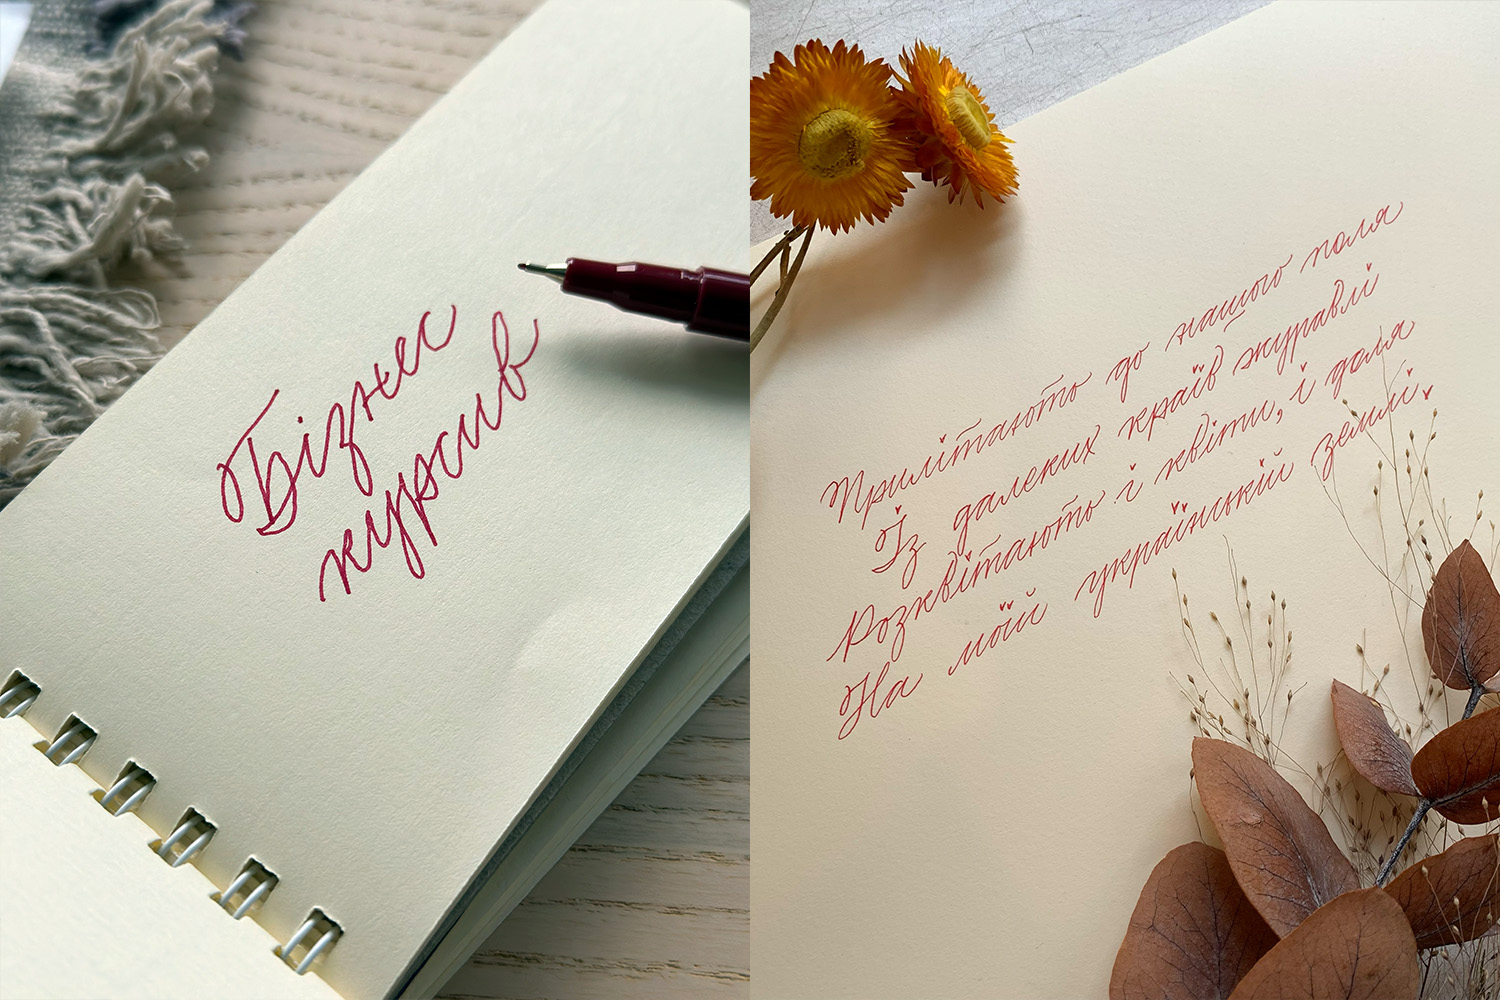 Бізнес
курсив
Прилітають до нашого поля
Із далеких країв журавлі
Розквітають і квіти, і доля
На моїй українській землі.